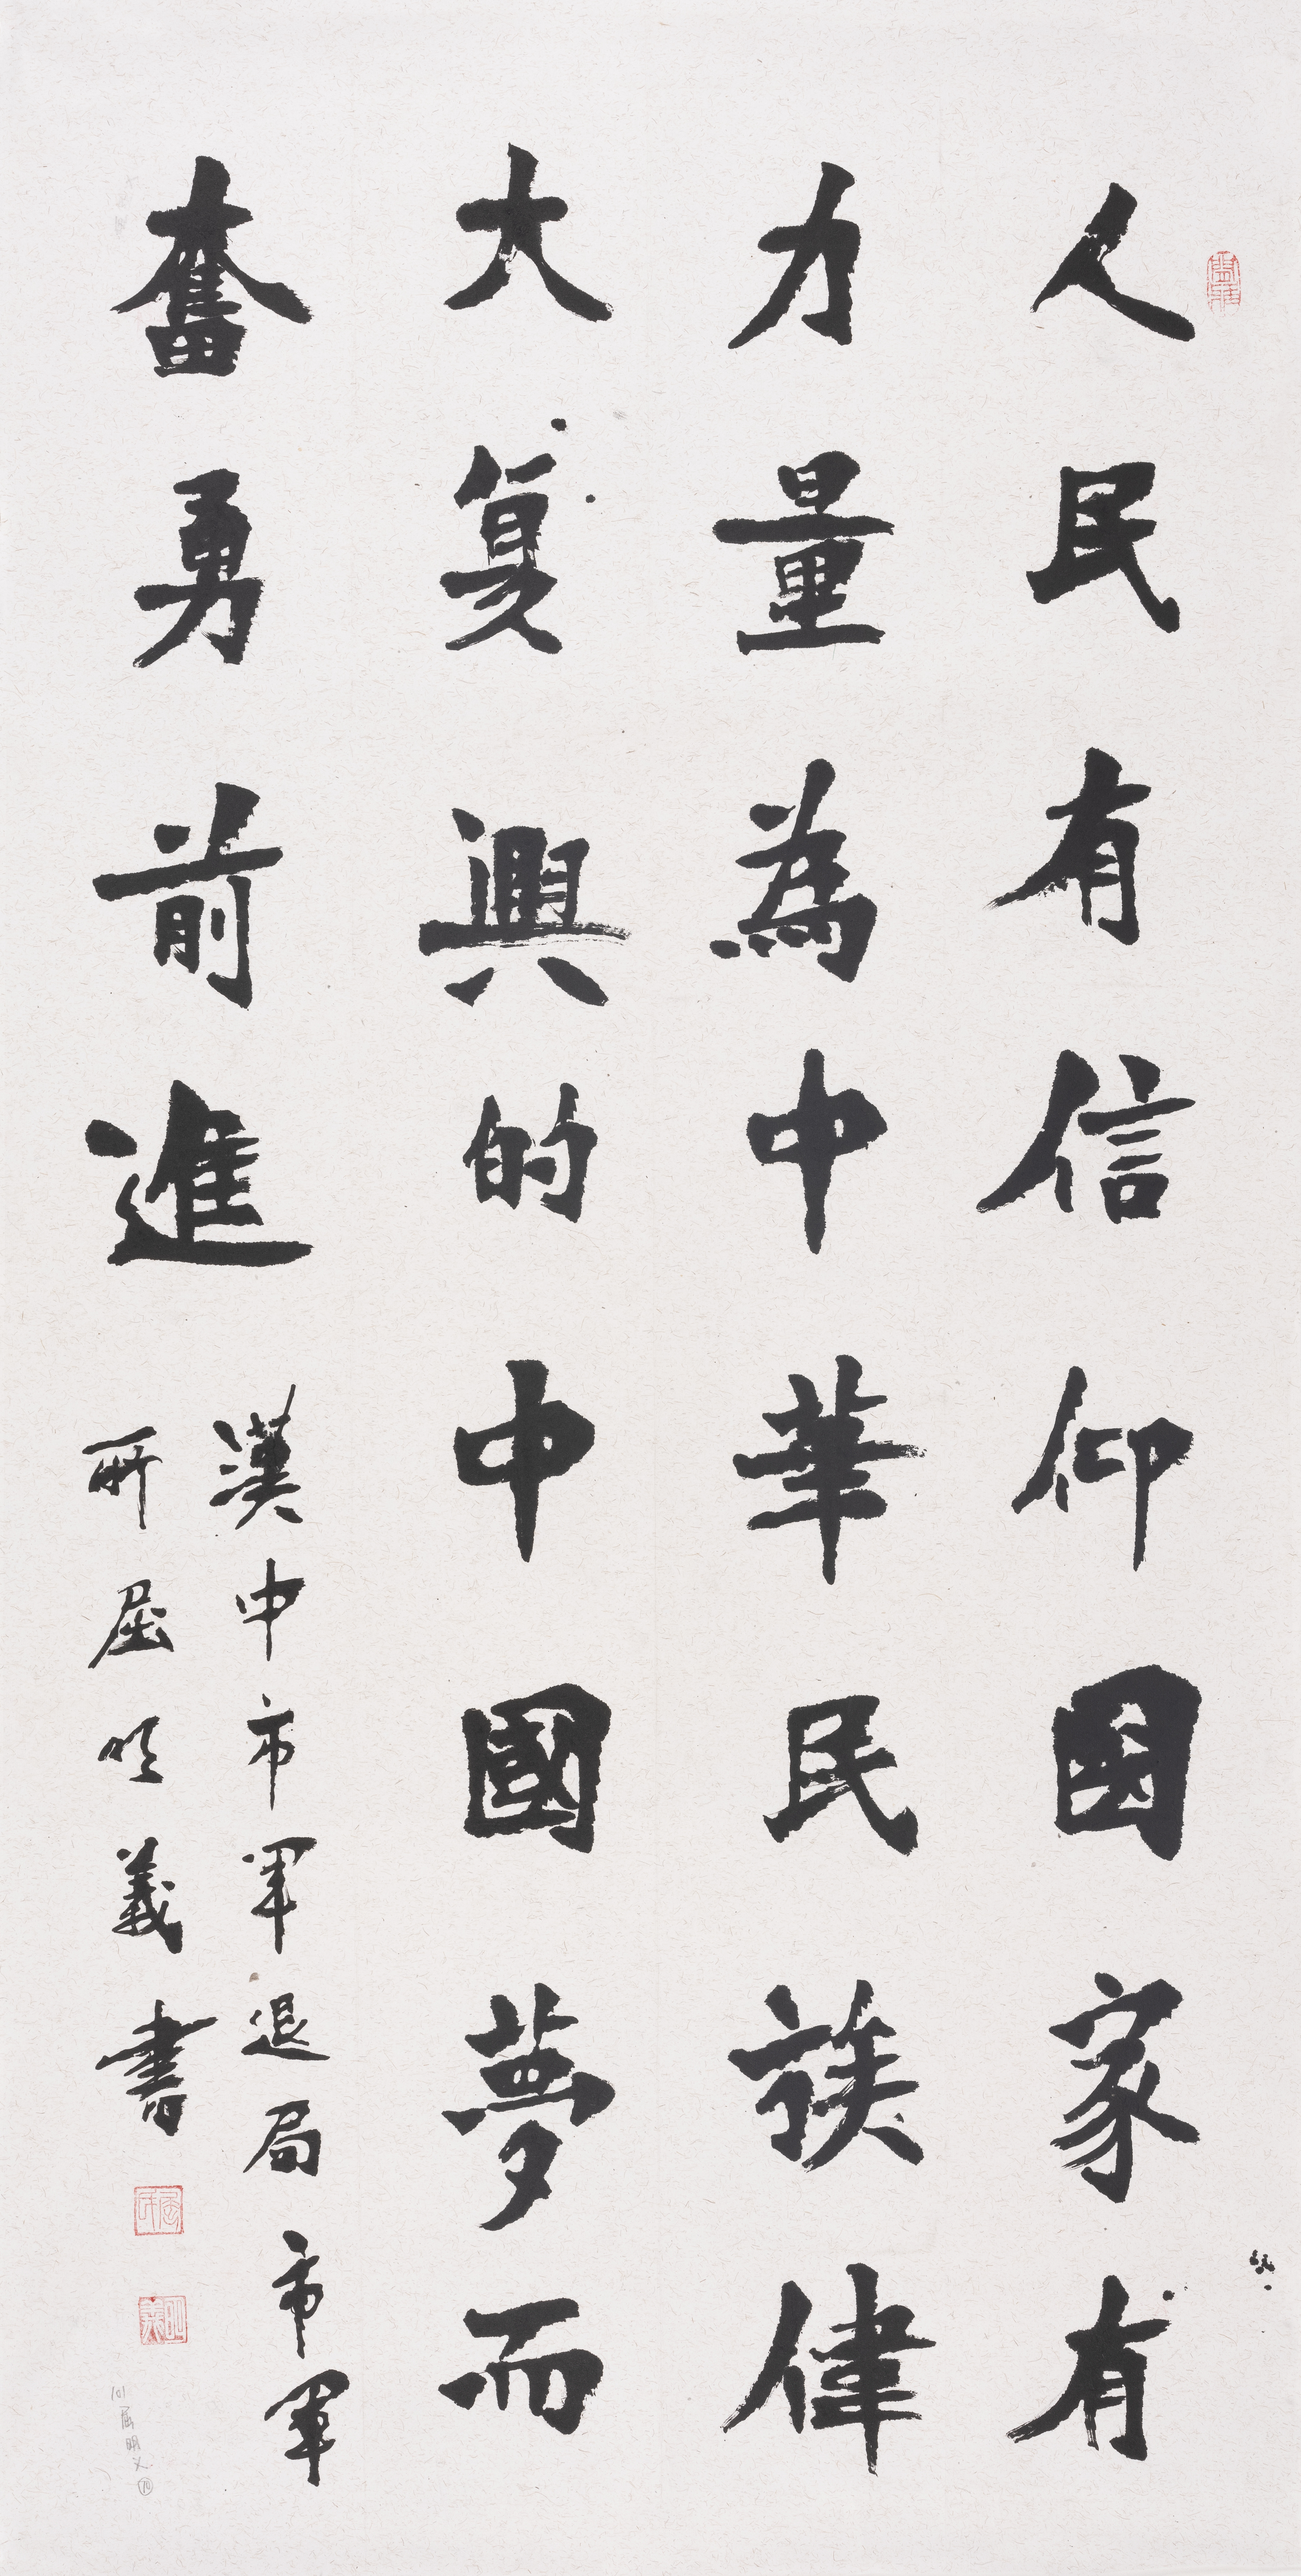 人民有信仰国家有
力量為中華民族偉
大复興的中國夢而
奮勇前進
漢中市軍退局市軍
所屈明義書
屈氏
明義
屈明义